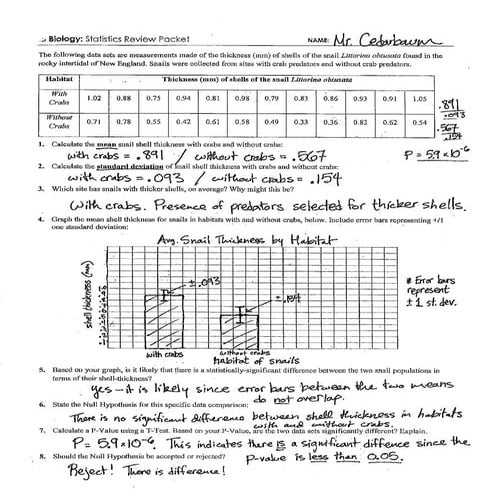 Biology: Statistics Review Packet NAME: Mr. Cedarbaum
The following data sets are measurements made of the thickness (mm) of shells of the snail Littorina obtusata found in the
rocky intertidal of New England. Snails were collected from sites with crab predators and without crab predators.
Habitat Thickness (mm) of shells of the snail Littorina obtusata
With Crabs 1.02 0.88 0.75 0.94 0.81 0.98 0.79 0.83 0.86 0.93 0.91 1.05
Without Crabs 0.71 0.78 0.55 0.42 0.61 0.58 0.49 0.33 0.36 0.82 0.62 0.54
.891
.093
.567
.154
1. Calculate the mean snail shell thickness with crabs and without crabs:
with crabs = .891 / without crabs = .567 P = 5.9 x 10⁻⁶
2. Calculate the standard deviation of snail shell thickness with crabs and without crabs:
with crabs = .093 / without crabs = .154
3. Which site has snails with thicker shells, on average? Why might this be?
With crabs. Presence of predators selected for thicker shells.
4. Graph the mean shell thickness for snails in habitats with and without crabs, below. Include error bars representing +/1
one standard deviation:
Avg. Snail Thickness by Habitat
shell thickness (mm)
± .093
± .154
* Error bars
represent
± 1 st. dev.
with crabs
without crabs
Habitat of snails
5. Based on your graph, is it likely that there is a statistically-significant difference between the two snail populations in
terms of their shell-thickness?
yes - it is likely since error bars between the two means
do not overlap.
6. State the Null Hypothesis for this specific data comparison:
There is no significant difference between shell thickness in habitats
with and without crabs.
7. Calculate a P-Value using a T-Test. Based on your P-Value, are the two data sets significantly different? Explain.
P = 5.9 x 10⁻⁶ This indicates there is a significant diffence since the
p-value is less than 0.05.
8. Should the Null Hypothesis be accepted or rejected?
Reject! There is difference!